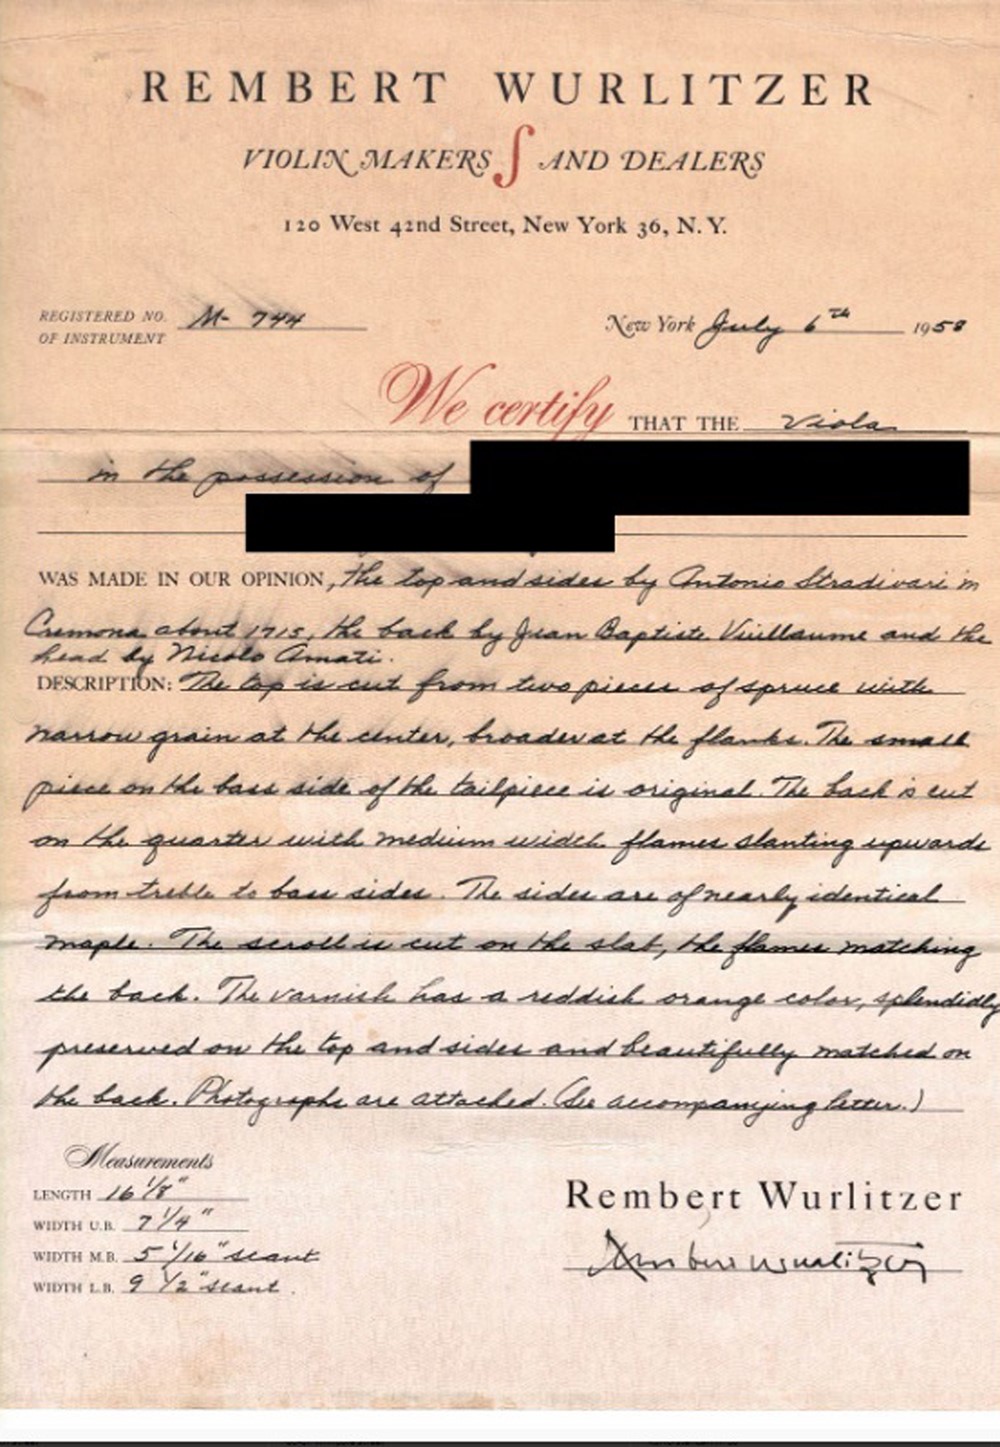 REMBERT WURLITZER
VIOLIN MAKERS AND DEALERS
120 West 42nd Street, New York 36, N.Y.
REGISTERED NO. M- 744
OF INSTRUMENT
New York July 6th 1958
We certify THAT THE Viola
in the possession of
WAS MADE IN OUR OPINION, the top and sides by Antonio Stradivari in
Cremona about 1715, the back by Jean Baptiste Vuillaume and the
head by Nicolo Amati.
DESCRIPTION: The top is cut from two pieces of spruce with
narrow grain at the center, broader at the flanks. The small
piece on the bass side of the tailpiece is original. The back is cut
on the quarter with medium width flames slanting upwards
from treble to bass sides. The sides are of nearly identical
maple. The scroll is cut on the slab, the flames matching
the back. The varnish has a reddish orange color, splendidly
preserved on the top and sides and beautifully matched on
the back. Photographs are attached. (See accompanying letter.)
Measurements
LENGTH 16 1/8"
WIDTH U.B. 7 1/4"
WIDTH M.B. 5 1/16" scant
WIDTH L.B. 9 1/2" scant.
Rembert Wurlitzer
Rembert Wurlitzer